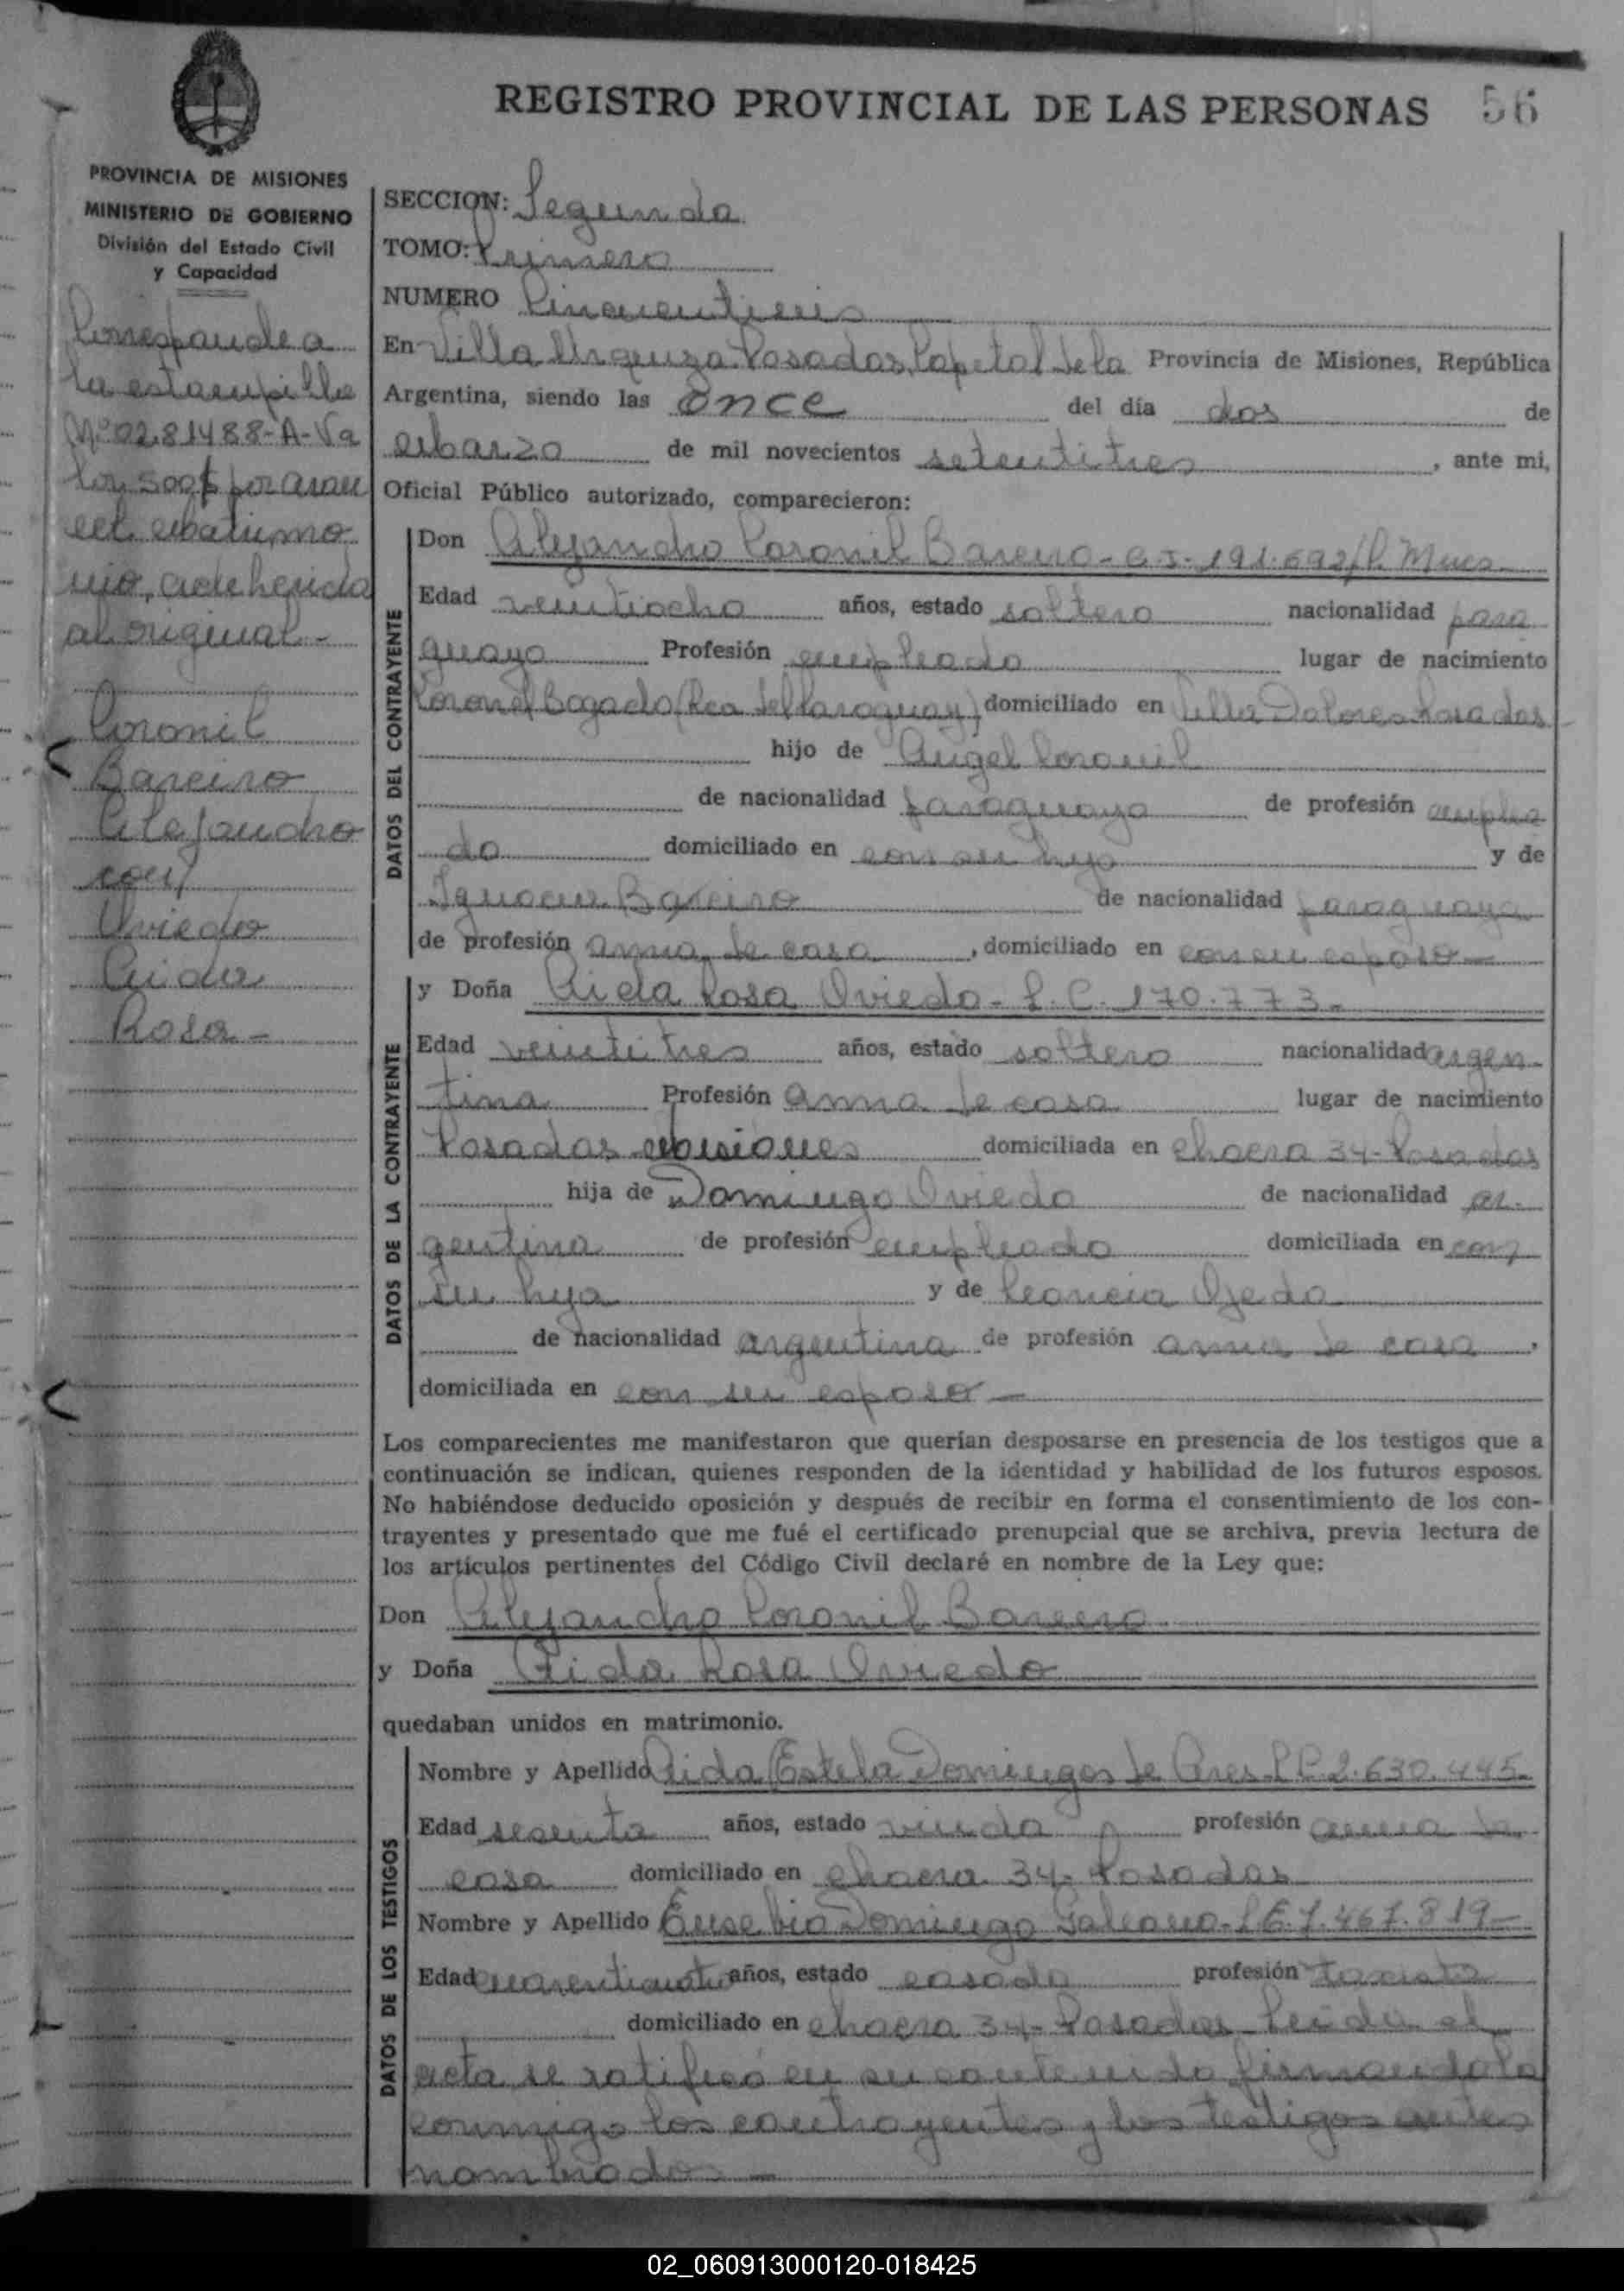 REGISTRO PROVINCIAL DE LAS PERSONAS 56
PROVINCIA DE MISIONES
MINISTERIO DE GOBIERNO
División del Estado Civil
y Capacidad
Corresponde a
la estampilla
Nº 0281488-A-Va
lor 500$ por aran
cel matrimo
nio, adherida
al original-
Coronil
Bareiro
Alejandro
con
Oviedo
Aida
Rosa-
SECCION: Segunda
TOMO: Primero
NUMERO Cincuentiseis
En Villa Urquiza Posadas, Capital de la Provincia de Misiones, República
Argentina, siendo las once del día dos de
marzo de mil novecientos setentitres, ante mi,
Oficial Público autorizado, comparecieron:
DATOS DEL CONTRAYENTE
Don Alejandro Coronil Bareiro- C.I. 191.692/P. Mnes.
Edad veintiocho años, estado soltero nacionalidad para
guayo Profesión empleado lugar de nacimiento
Coronel Bogado (Rca del Paraguay) domiciliado en Villa Dolores Posadas
hijo de Angel Coronil
de nacionalidad paraguayo de profesión emplea
do domiciliado en con su hijo y de
Ignacia Bareiro de nacionalidad paraguaya
de profesión ama de casa, domiciliado en con su esposo-
DATOS DE LA CONTRAYENTE
y Doña Aida Rosa Oviedo- L.C. 170.773-
Edad veintitres años, estado soltera nacionalidad argen-
tina Profesión ama de casa lugar de nacimiento
Posadas Misiones domiciliada en chacra 34- Posadas
hija de Domingo Oviedo de nacionalidad ar-
gentina de profesión empleado domiciliada en con
su hija y de Leoncia Ojeda
de nacionalidad argentina de profesión ama de casa,
domiciliada en con su esposo-
Los comparecientes me manifestaron que querían desposarse en presencia de los testigos que a
continuación se indican, quienes responden de la identidad y habilidad de los futuros esposos.
No habiéndose deducido oposición y después de recibir en forma el consentimiento de los con-
trayentes y presentado que me fué el certificado prenupcial que se archiva, previa lectura de
los artículos pertinentes del Código Civil declaré en nombre de la Ley que:
Don Alejandro Coronil Bareiro
y Doña Aida Rosa Oviedo
quedaban unidos en matrimonio.
DATOS DE LOS TESTIGOS
Nombre y Apellido Aida Estela Domingos de Ares L.C. 2.630.445-
Edad sesenta años, estado viuda profesión ama de
casa domiciliado en chacra 34- Posadas
Nombre y Apellido Eusebio Domingo Galeano- L.E. 7.467.819-
Edad cuarenticuatro años, estado casado profesión taxista
domiciliado en chacra 34- Posadas- Leida el
acta se ratificó en su contenido firmandola
conmigo los contrayentes y los testigos antes
nombrados-
02_060913000120-018425